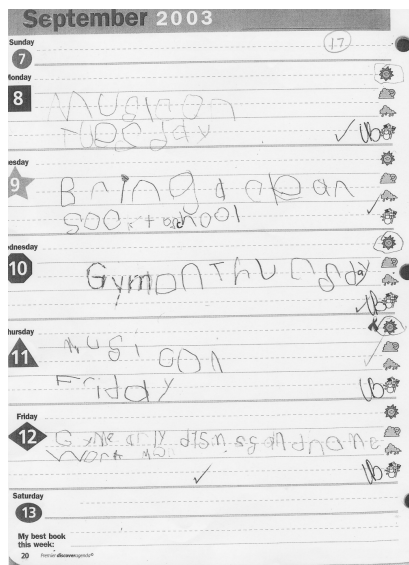 September 2003
17
Sunday
7
Monday
8
Music on
Tuesday
Tuesday
9
Bring a clean
sock to school
Wednesday
10
Gym on Thursday
Thursday
11
Music on
Friday
Friday
12
Gym early and no
Work
Saturday
13
My best book
this week:
20 Premier discover agenda